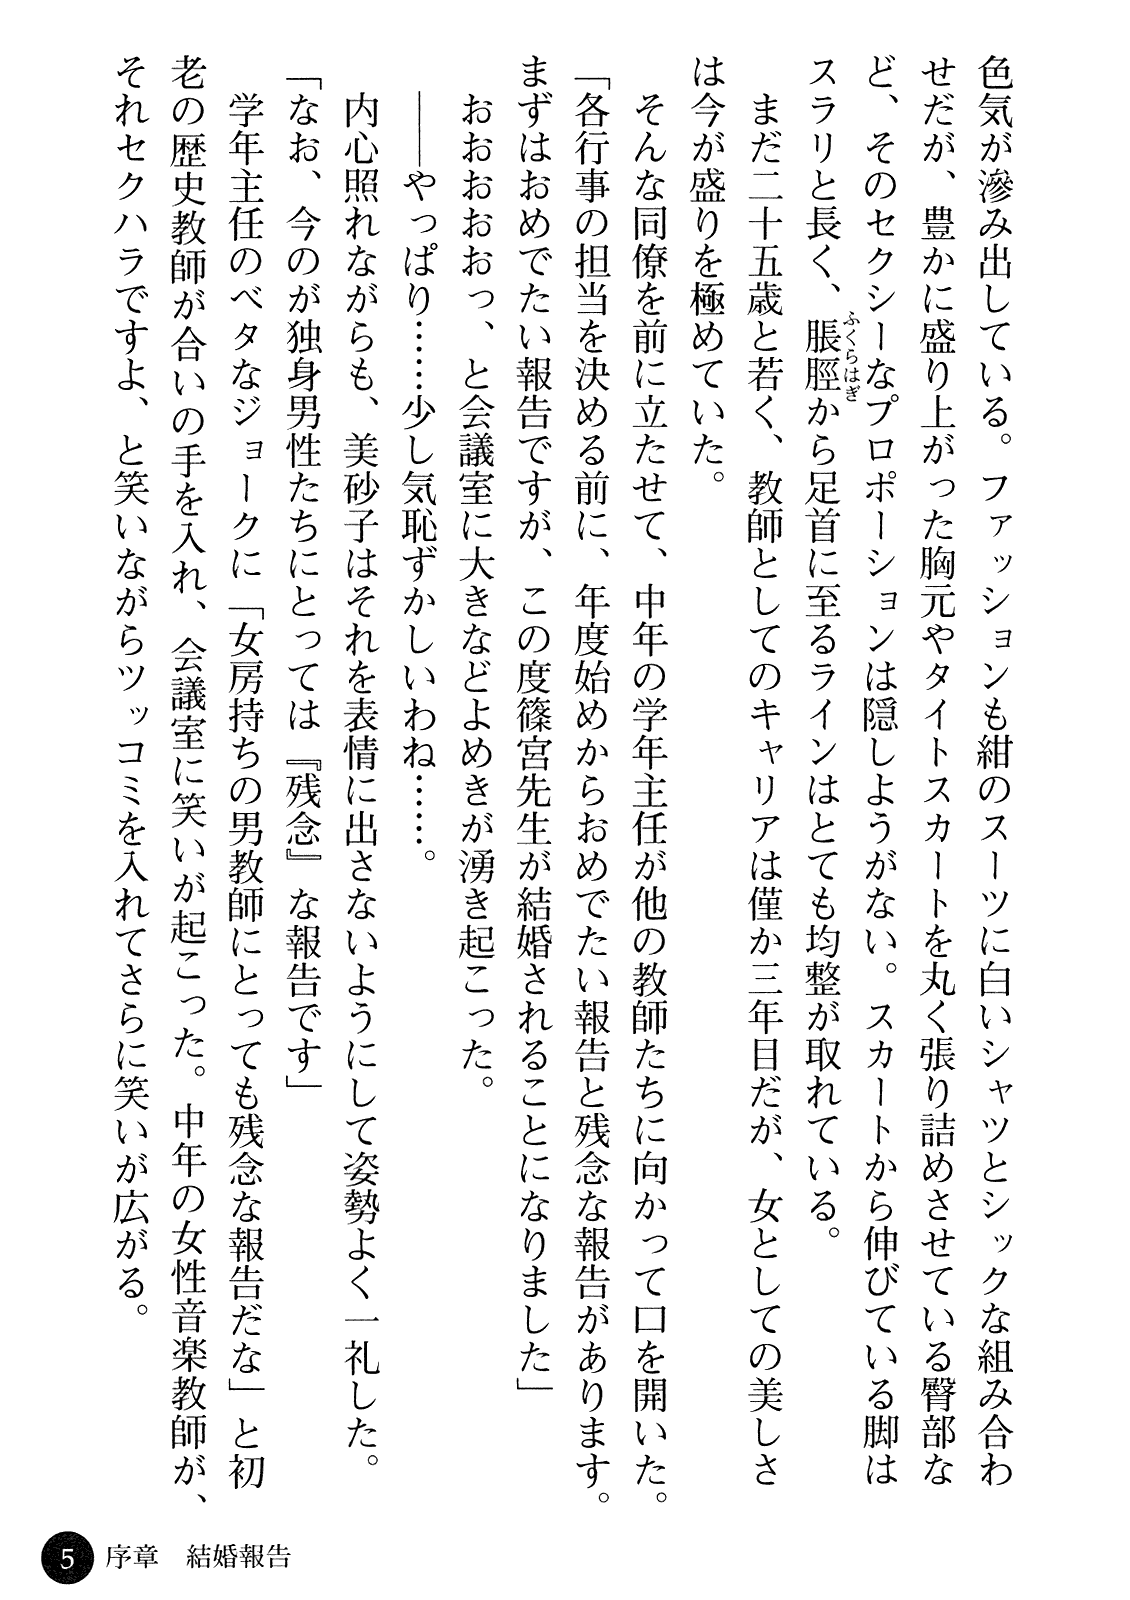 色気が滲み出している。ファッションも紺のスーツに白いシャツとシックな組み合わ
せだが、豊かに盛り上がった胸元やタイトスカートを丸く張り詰めさせている臀部な
ど、そのセクシーなプロポーションは隠しようがない。スカートから伸びている脚は
スラリと長く、脹脛から足首に至るラインはとても均整が取れている。
ふくらはぎ
まだ二十五歳と若く、教師としてのキャリアは僅か三年目だが、女としての美しさ
は今が盛りを極めていた。
そんな同僚を前に立たせて、中年の学年主任が他の教師たちに向かって口を開いた。
「各行事の担当を決める前に、年度始めからおめでたい報告と残念な報告があります。
まずはおめでたい報告ですが、この度篠宮先生が結婚されることになりました」
おおおおおっ、と会議室に大きなどよめきが湧き起こった。
――やっぱり……少し気恥ずかしいわね……。
内心照れながらも、美砂子はそれを表情に出さないようにして姿勢よく一礼した。
「なお、今のが独身男性たちにとっては『残念』な報告です」
学年主任のベタなジョークに「女房持ちの男教師にとっても残念な報告だな」と初
老の歴史教師が合いの手を入れ、会議室に笑いが起こった。中年の女性音楽教師が、
それセクハラですよ、と笑いながらツッコミを入れてさらに笑いが広がる。
5 序章 結婚報告